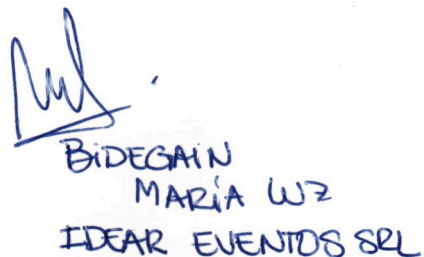 BIDEGAIN
MARÍA LUZ
IDEAR EVENTOS SRL